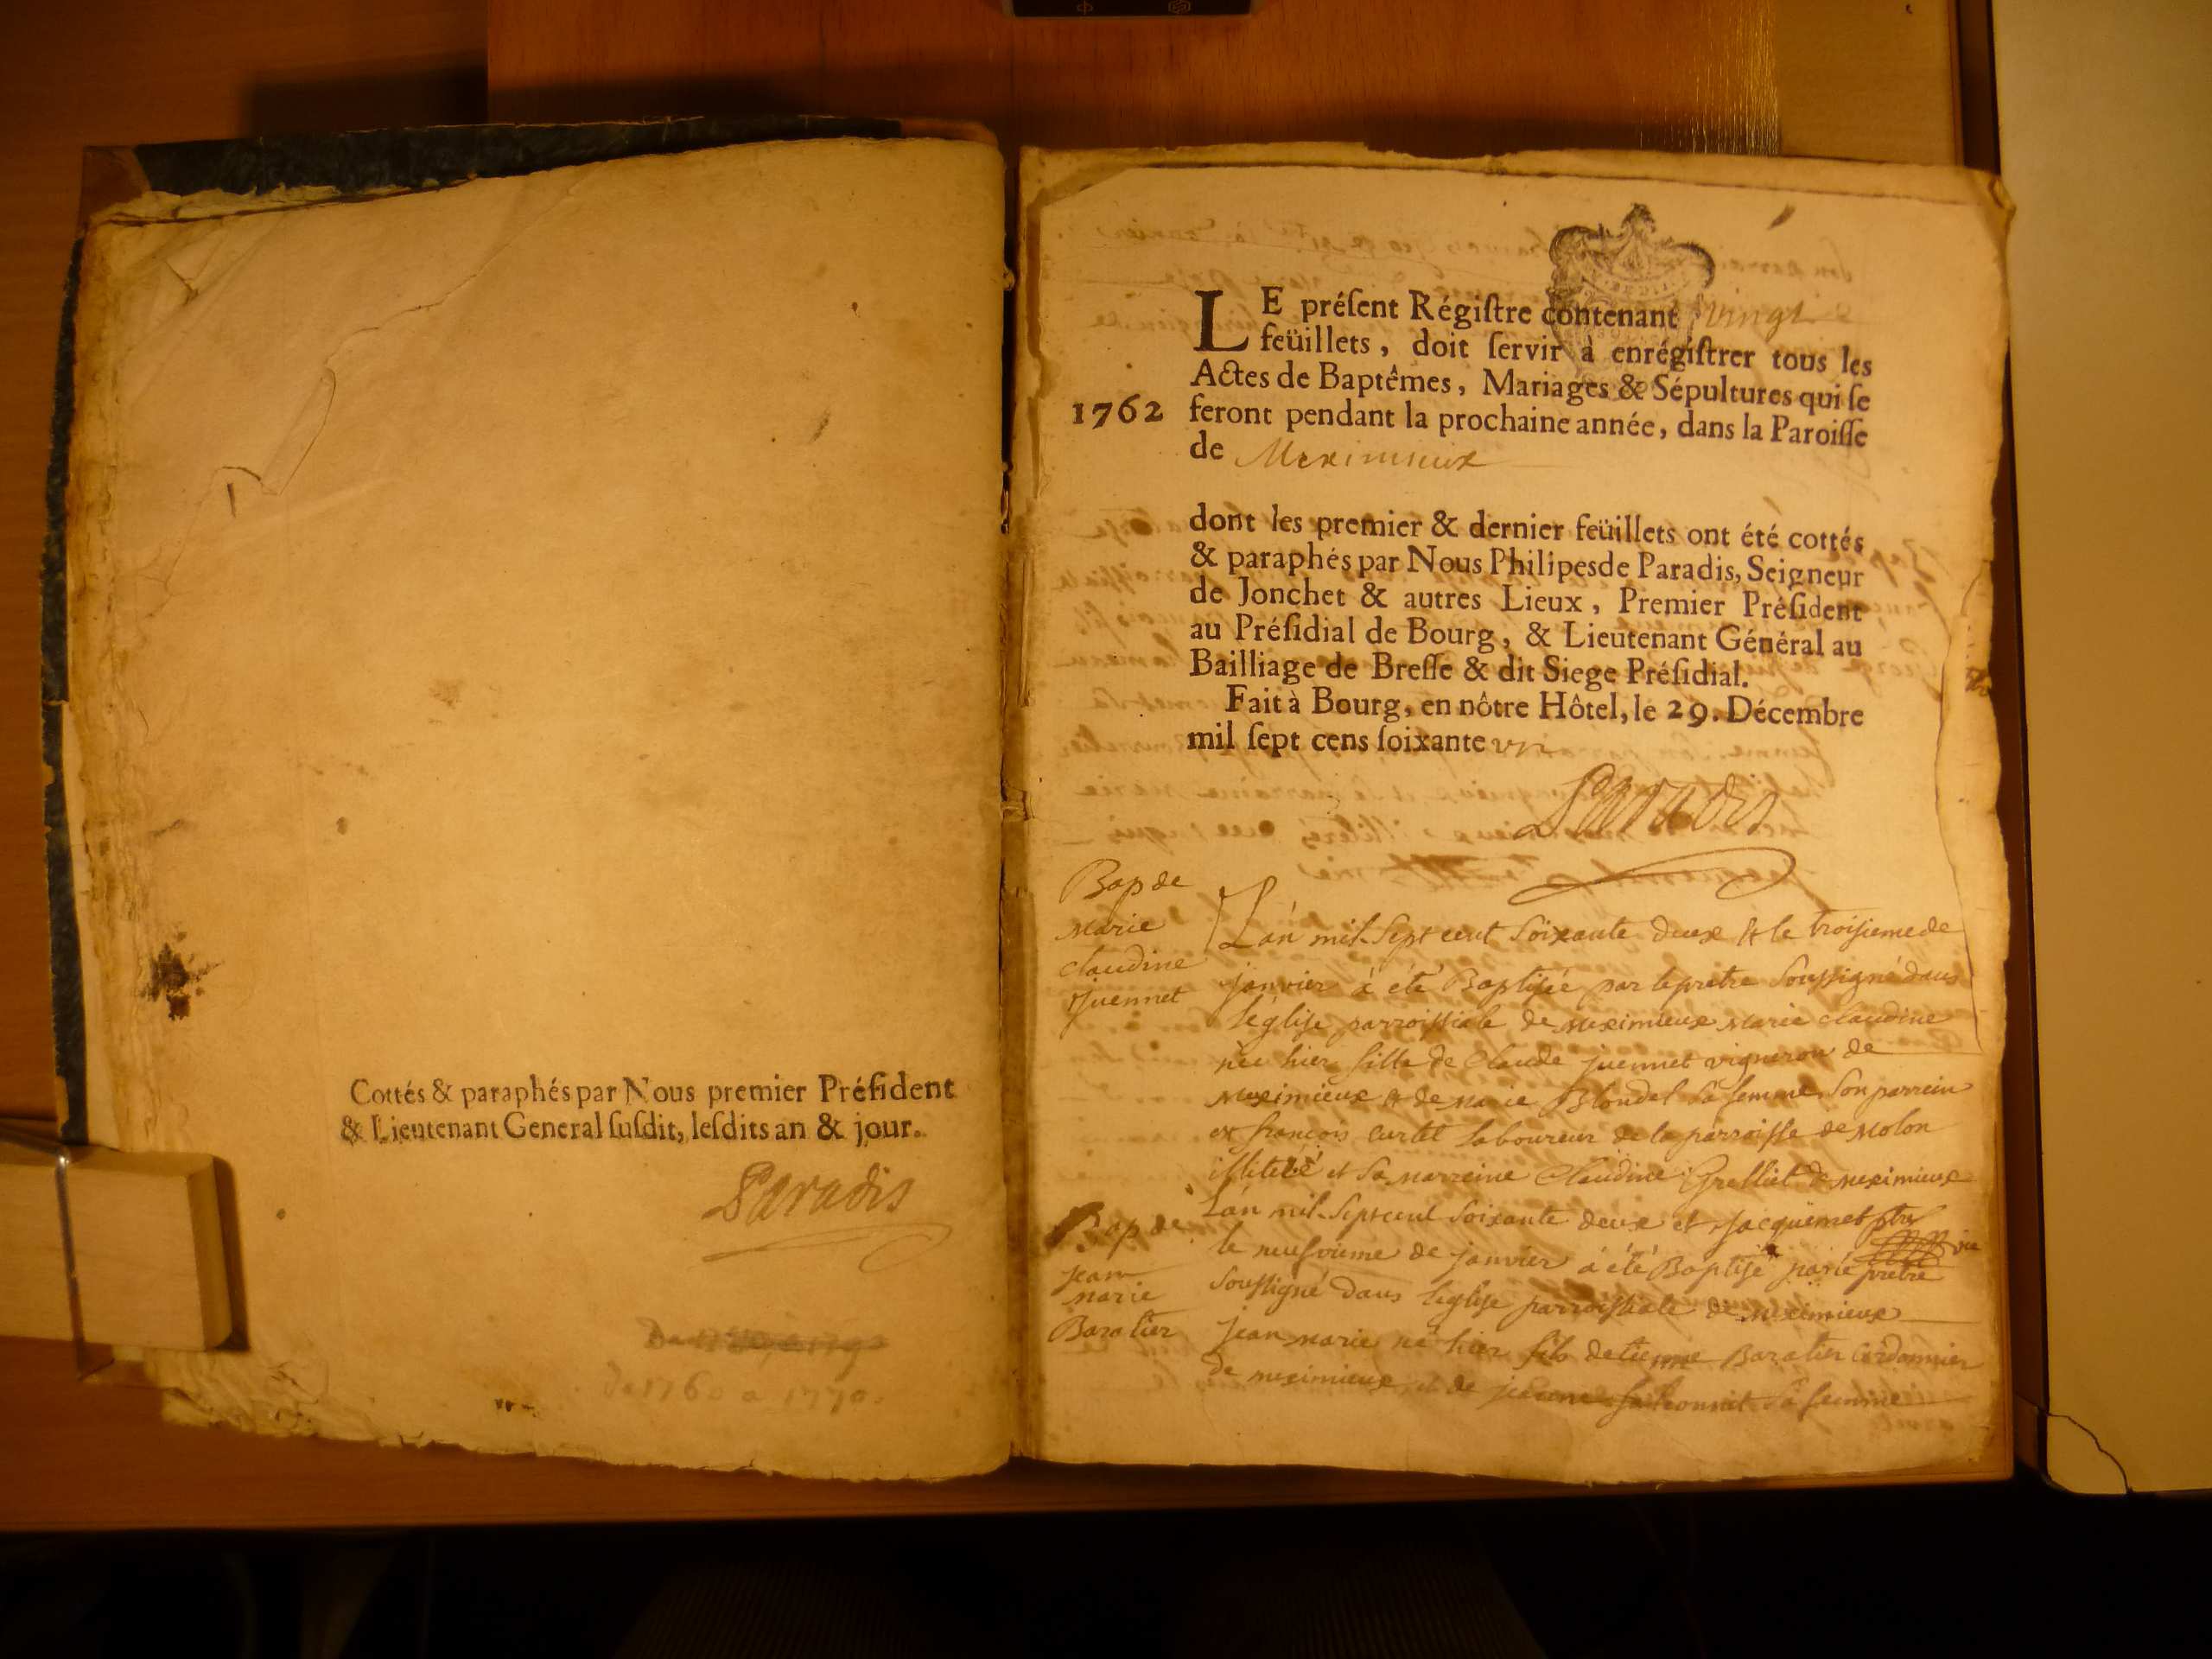 Cottés & paraphés par Nous premier Préſident
& Lieutenant General ſuſdit, leſdits an & jour.
Paradis
de 1760 a 1770.
LE préſent Régiſtre contenant vingt
feüillets, doit ſervir à enrégiſtrer tous les
Actes de Baptêmes, Mariages & Sépultures qui ſe
1762 feront pendant la prochaine année, dans la Paroiſſe
de Meximieux
dont les premier & dernier feüillets ont été cottés
& paraphés par Nous Philipes de Paradis, Seigneur
de Jonchet & autres Lieux, Premier Préſident
au Préſidial de Bourg, & Lieutenant Général au
Bailliage de Breſſe & dit Siege Préſidial.
Fait à Bourg, en nôtre Hôtel, le 29. Décembre
mil ſept cens ſoixante un
Paradis
Bap de
Marie
claudine
juennet
L'án mil Sept cent Soixante deux & le troisieme de
janvier à été Baptisée par le pretre Soussigné dans
l'église parroissiale de meximieux Marie claudine
née hier fille de Claude juennet vigneron de
meximieux & de marie Blondel Sa femme, Son parrein
est françois curtet laboureur de la parroisse de Molon
illiteré et Sa marreine Claudine Grelliet de meximieux
Jacquemet ptre
Bap de
jean
marie
Baratier
L'án mil Sept cent Soixante deux et
le neufvieme de janvier á été Baptisé par le pretre
Soussigné dans l'eglise parroissiale de meximieux
jean marie né hier fils detienne Baratier Cordonnier
de meximieux et de jeanne Sa femme